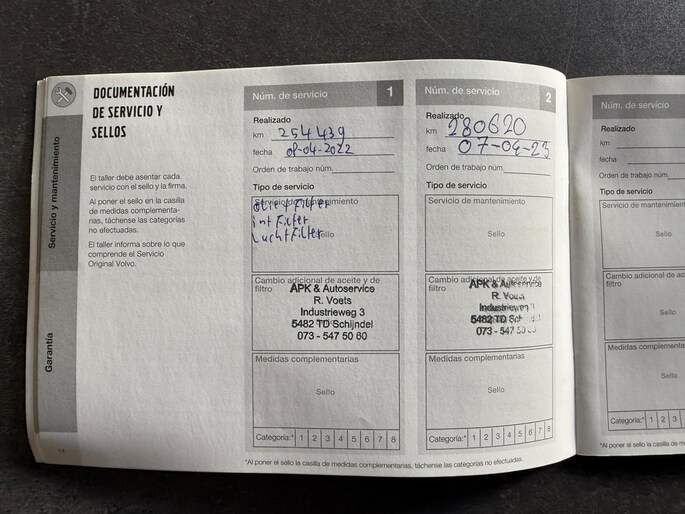 DOCUMENTACIÓN
DE SERVICIO Y
SELLOS
El taller debe asentar cada
servicio con el sello y la firma.
Al poner el sello en la casilla
de medidas complementa-
rias, táchense las categorías
no efectuadas.
El taller informa sobre lo que
comprende el Servicio
Original Volvo.
Servicio y mantenimiento
Garantía
14
Núm. de servicio 1
Realizado
km 254439
fecha 08-04-2022
Orden de trabajo núm.
Tipo de servicio
Servicio de mantenimiento
Filter
int Filter
Lucht Filter
Sello
Cambio adicional de aceite y de
filtro
APK & Autoservice
R. Voets
Industrieweg 3
5482 TD Schijndel
073 - 547 50 60
Medidas complementarias
Sello
Categoría:* 1 2 3 4 5 6 7 8
Núm. de servicio 2
Realizado
km 280620
fecha 07-04-23
Orden de trabajo núm.
Tipo de servicio
Servicio de mantenimiento
Sello
Cambio adicional de aceite y de
filtro
APK & Autoservice
R. Voets
Industrieweg
5482 TD
073 - 547
Medidas complementarias
Sello
Categoría:* 1 2 3 4 5 6 7 8
*Al poner el sello la casilla de medidas complementarias, táchense las categorías no efectuadas.
Núm. de servicio
Realizado
km
fecha
Orden de trabajo núm.
Tipo de servicio
Servicio de mantenim
Sello
Cambio adicional de ac
filtro
Sello
Medidas complementa
Sello
Categoría:* 1 2 3
*Al poner el sello la casilla de m